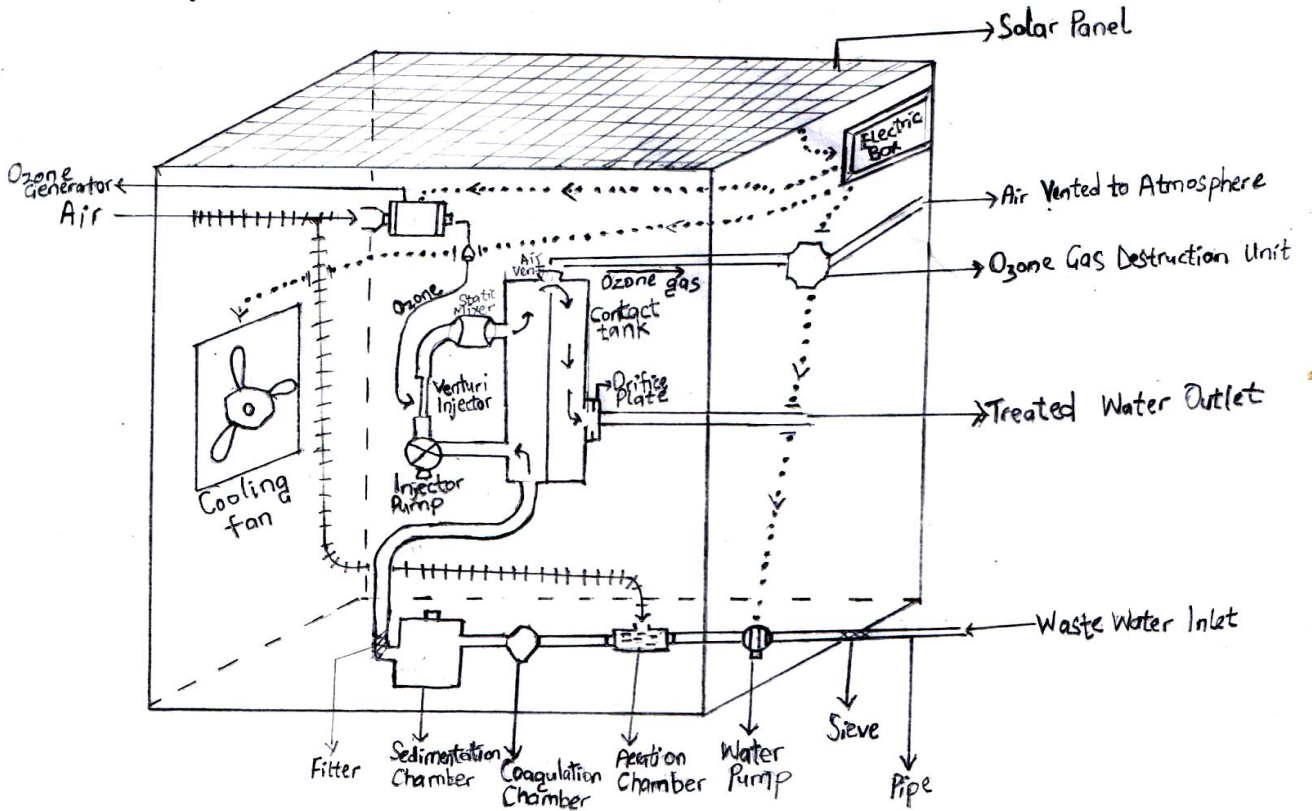 Solar Panel
Electric
Box
Ozone
Generator
Air
Air Vented to Atmosphere
Ozone Gas Destruction Unit
Air
Vent
Ozone gas
Ozone
Static
Mixer
Contact
tank
Venturi
Injector
Orifice
Plate
Treated Water Outlet
Injector
Pump
Cooling
fan
Waste Water Inlet
Filter
Sedimentation
Chamber
Coagulation
Chamber
Aeration
Chamber
Water
Pump
Sieve
Pipe